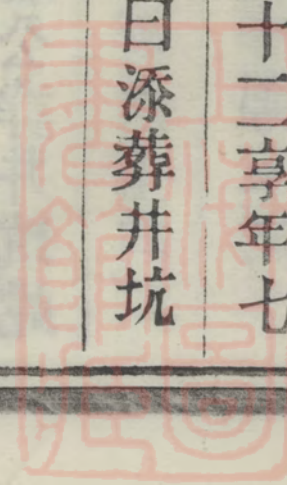 十二享年七
日添葬井坑